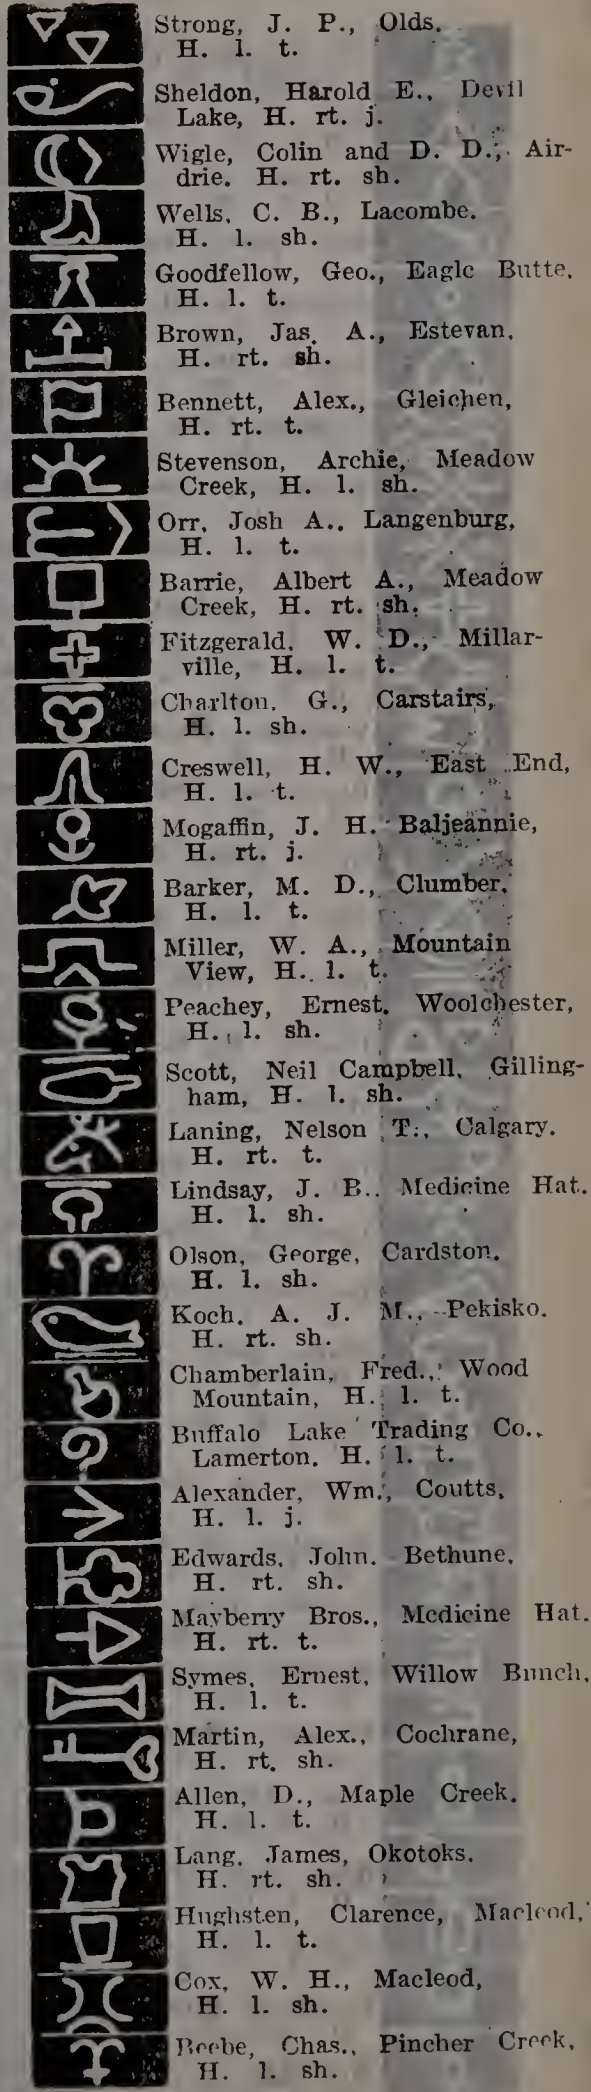 Strong, J. P., Olds.
H. l. t.
Sheldon, Harold E., Devil
Lake, H. rt. j.
Wigle, Colin and D. D., Air-
drie. H. rt. sh.
Wells, C. B., Lacombe.
H. l. sh.
Goodfellow, Geo., Eagle Butte.
H. l. t.
Brown, Jas. A., Estevan.
H. rt. sh.
Bennett, Alex., Gleichen,
H. rt. t.
Stevenson, Archie, Meadow
Creek, H. l. sh.
Orr, Josh A., Langenburg,
H. l. t.
Barrie, Albert A., Meadow
Creek, H. rt. sh.
Fitzgerald, W. D., Millar-
ville, H. l. t.
Charlton, G., Carstairs,
H. l. sh.
Creswell, H. W., East End,
H. l. t.
Mogaffin, J. H. Baljeannie,
H. rt. j.
Barker, M. D., Clumber,
H. l. t.
Miller, W. A., Mountain
View, H. l. t.
Peachey, Ernest, Woolchester,
H. l. sh.
Scott, Neil Campbell, Gilling-
ham, H. l. sh.
Laning, Nelson T., Calgary.
H. rt. t.
Lindsay, J. B., Medicine Hat.
H. l. sh.
Olson, George, Cardston.
H. l. sh.
Koch, A. J. M., Pekisko.
H. rt. sh.
Chamberlain, Fred., Wood
Mountain, H. l. t.
Buffalo Lake Trading Co.,
Lamerton. H. l. t.
Alexander, Wm., Coutts,
H. l. j.
Edwards, John. Bethune,
H. rt. sh.
Mayberry Bros., Medicine Hat.
H. rt. t.
Symes, Ernest, Willow Bunch,
H. l. t.
Martin, Alex., Cochrane,
H. rt. sh.
Allen, D., Maple Creek.
H. l. t.
Lang, James, Okotoks.
H. rt. sh.
Hughsten, Clarence, Macleod,
H. l. t.
Cox, W. H., Macleod,
H. l. sh.
Beebe, Chas., Pincher Creek,
H. l. sh.